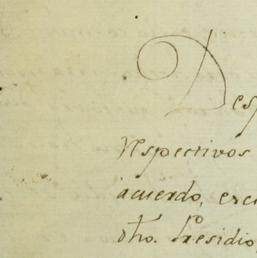 Desp
respectivos
acuerdo, exc
dho. Presidio,